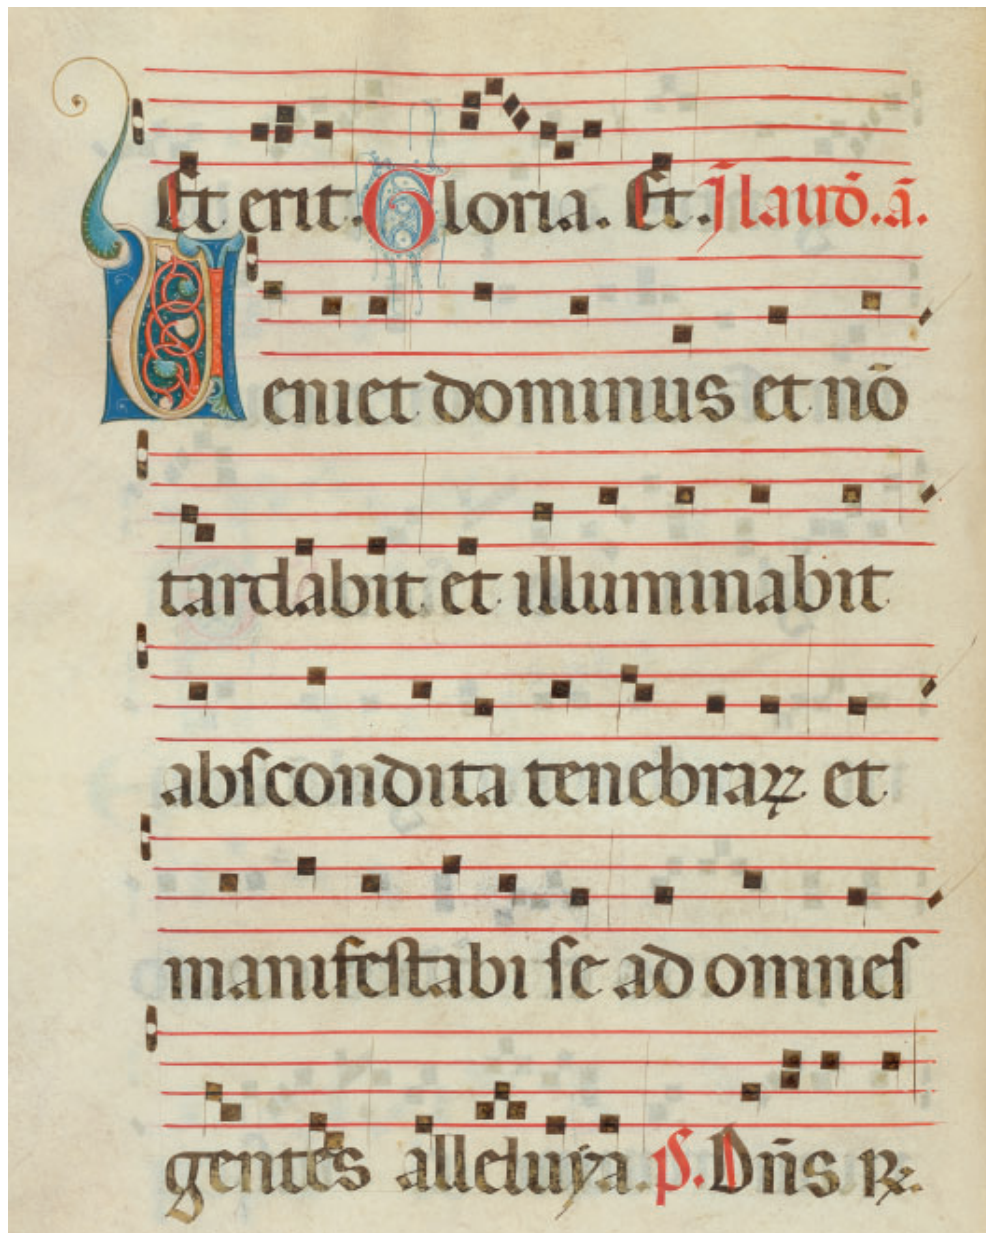 Et erit. Gloria. Et. J laud̄. ā.
Veniet dominus et nō
tardabit et illuminabit
abſcondita tenebraꝝ et
manifeſtabi ſe ad omneſ
gentes alleluya. p̄. Dn̄s ꝶ.